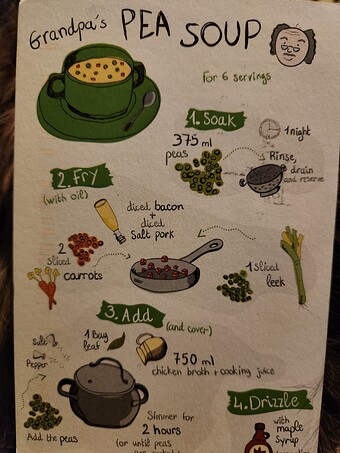 Grandpa's PEA SOUP
For 6 servings
1. Soak
375 ml
peas
1 night
Rinse,
drain
and reserve
2. Fry
(with oil)
diced bacon
+
diced
Salt pork
2
sliced
carrots
1 Sliced
leek
3. Add
(and cover)
Salt
Pepper
1 Bay
leaf
750 ml
chicken broth + cooking juice
Add the peas
Simmer for
2 hours
(or until peas
4. Drizzle
with
maple
syrup